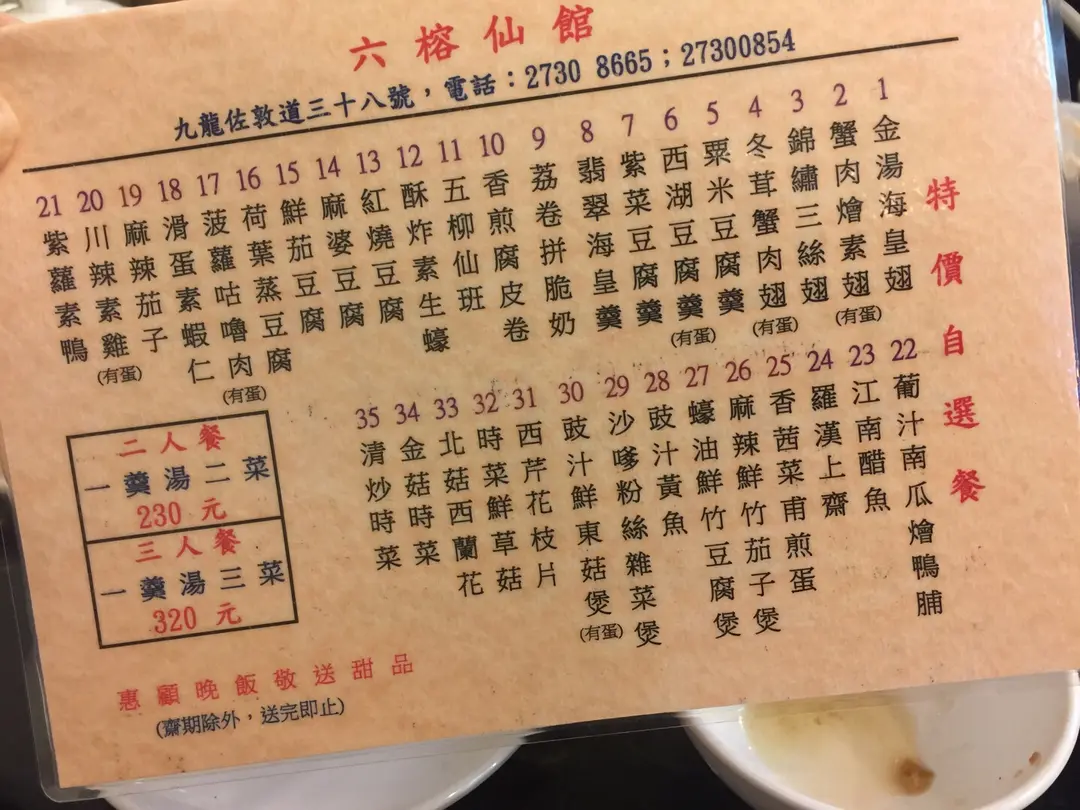 六榕仙館
九龍佐敦道三十八號，電話：2730 8665；27300854
特價自選餐
1 金湯海皇翅
2 蟹肉燴素翅(有蛋)
3 錦繡三絲翅
4 冬茸蟹肉翅(有蛋)
5 粟米豆腐羹
6 西湖豆腐羹(有蛋)
7 紫菜豆腐羹
8 翡翠海皇羹
9 荔卷拼脆奶
10 香煎腐皮卷
11 五柳仙班
12 酥炸素生蠔
13 紅燒豆腐
14 麻婆豆腐
15 鮮茄豆腐
16 荷葉蒸豆腐
17 菠蘿咕嚕肉(有蛋)
18 滑蛋素蝦仁
19 麻辣茄子
20 川辣素雞(有蛋)
21 紫蘿素鴨
22 葡汁南瓜燴鴨脯
23 江南醋魚
24 羅漢上齋
25 香茜菜甫煎蛋
26 麻辣鮮竹茄子煲
27 蠔油鮮竹豆腐煲
28 豉汁黃魚
29 沙嗲粉絲雜菜煲
30 豉汁鮮東菇煲(有蛋)
31 西芹花枝片
32 時菜鮮草菇
33 北菇西蘭花
34 金菇時菜
35 清炒時菜
二人餐
一羹湯二菜
230 元
三人餐
一羹湯三菜
320 元
惠顧晚飯敬送甜品
(齋期除外，送完即止)